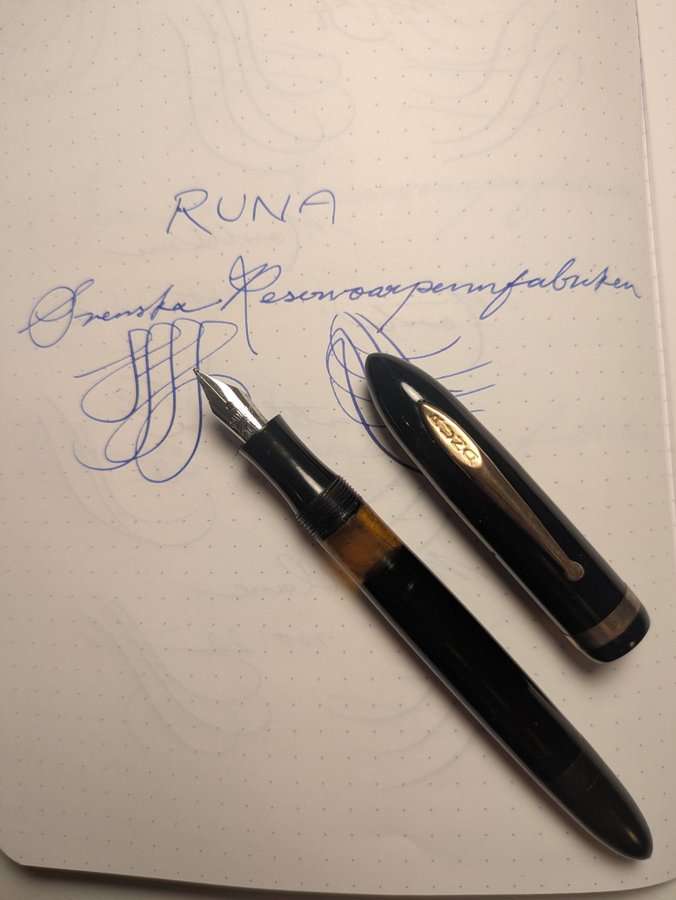 RUNA
Svenska Reservoarpennfabriken
RUNA